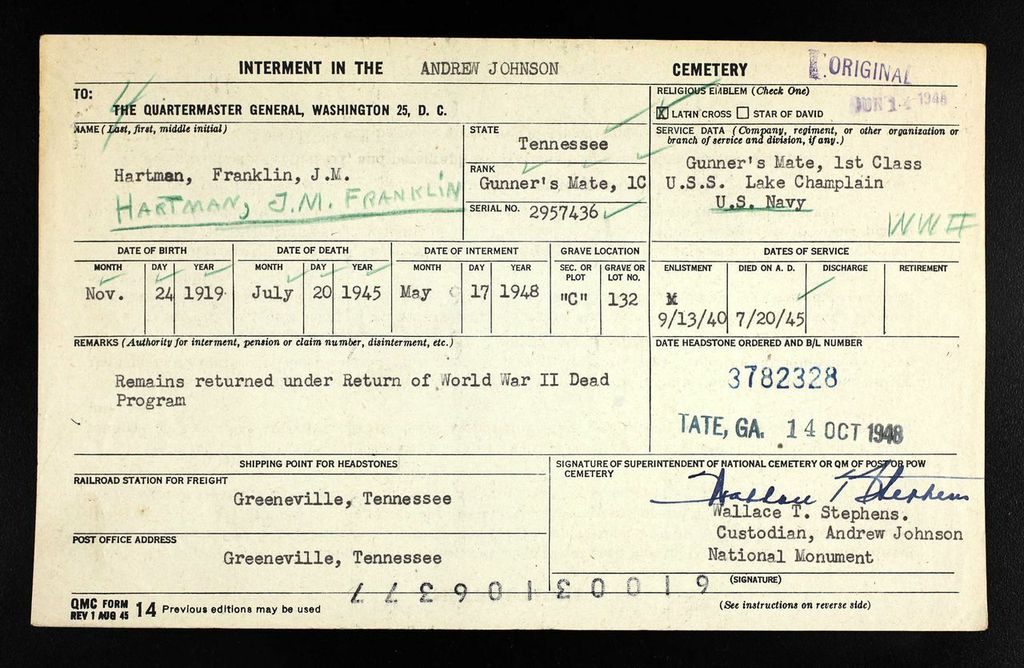 INTERMENT IN THE ANDREW JOHNSON CEMETERY
ORIGINAL
TO:
THE QUARTERMASTER GENERAL, WASHINGTON 25, D. C.
RELIGIOUS EMBLEM (Check One)
JUN 14 1948
X LATIN CROSS STAR OF DAVID
NAME (Last, first, middle initial)
Hartman, Franklin, J.M.
HARTMAN, J.M. FRANKLIN
STATE
Tennessee
RANK
Gunner's Mate, 1C
SERIAL NO. 2957436
SERVICE DATA (Company, regiment, or other organization or
branch of service and division, if any.)
Gunner's Mate, 1st Class
U.S.S. Lake Champlain
U.S. Navy
WW II
DATE OF BIRTH DATE OF DEATH DATE OF INTERMENT GRAVE LOCATION DATES OF SERVICE
MONTH DAY YEAR MONTH DAY YEAR MONTH DAY YEAR SEC. OR PLOT GRAVE OR LOT NO. ENLISTMENT DIED ON A. D. DISCHARGE RETIREMENT
Nov. 24 1919 July 20 1945 May 17 1948 "C" 132
9/13/40 7/20/45
REMARKS (Authority for interment, pension or claim number, disinterment, etc.)
Remains returned under Return of World War II Dead
Program
DATE HEADSTONE ORDERED AND B/L NUMBER
3782328
TATE, GA. 14 OCT 1948
SHIPPING POINT FOR HEADSTONES
RAILROAD STATION FOR FREIGHT
Greeneville, Tennessee
POST OFFICE ADDRESS
Greeneville, Tennessee
SIGNATURE OF SUPERINTENDENT OF NATIONAL CEMETERY OR QM OF POST OR POW
CEMETERY
Wallace T. Stephens
Wallace T. Stephens.
Custodian, Andrew Johnson
National Monument
(SIGNATURE)
61003106377
QMC FORM
REV 1 AUG 45 14 Previous editions may be used
(See instructions on reverse side)